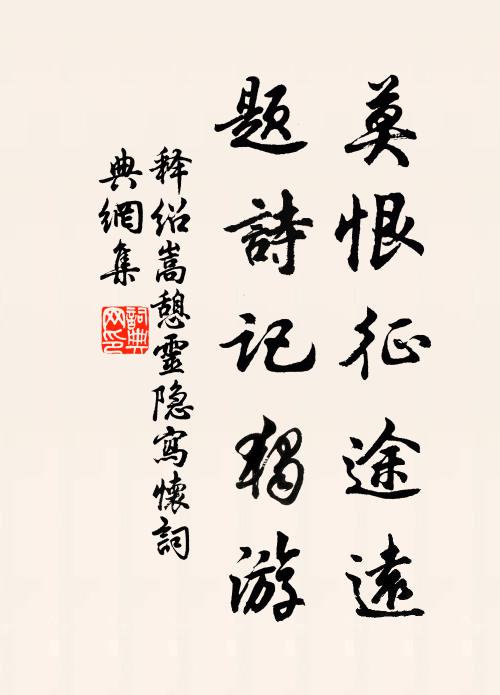 莫恨征途遠
題詩記獨游
释绍嵩憩靈隐寫懷詞
典網集
詞典網印